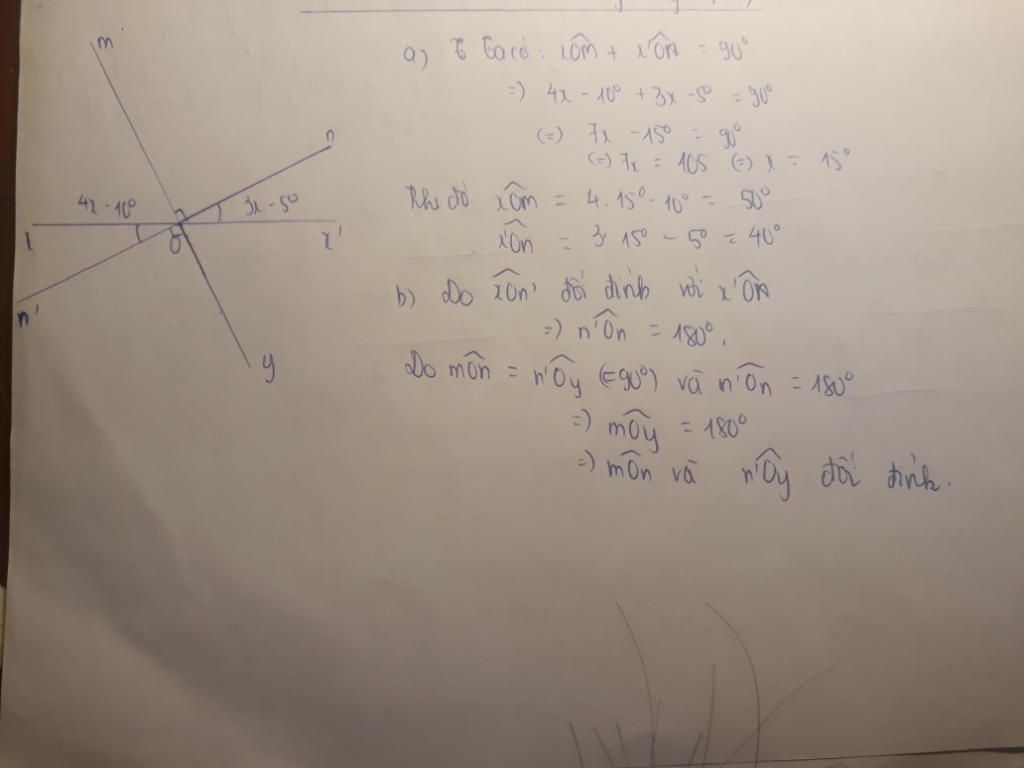 m
n
4x - 10°
3x - 5°
x
O
x'
n'
y
a) Ta có: xÔm + x'Ôn = 90°
=) 4x - 10° + 3x - 5° = 90°
(=) 7x - 15° = 90°
(=) 7x = 105 (=) x = 15°
Khi đó xÔm = 4.15° - 10° = 50°
x'Ôn = 3.15° - 5° = 40°
b) Do xÔn' đối đỉnh với x'Ôn
=) n'Ôn = 180°.
Do mÔn = n'Ôy (=90°) và n'Ôn = 180°
=) mÔy = 180°
=) mÔn và n'Ôy đối đỉnh.